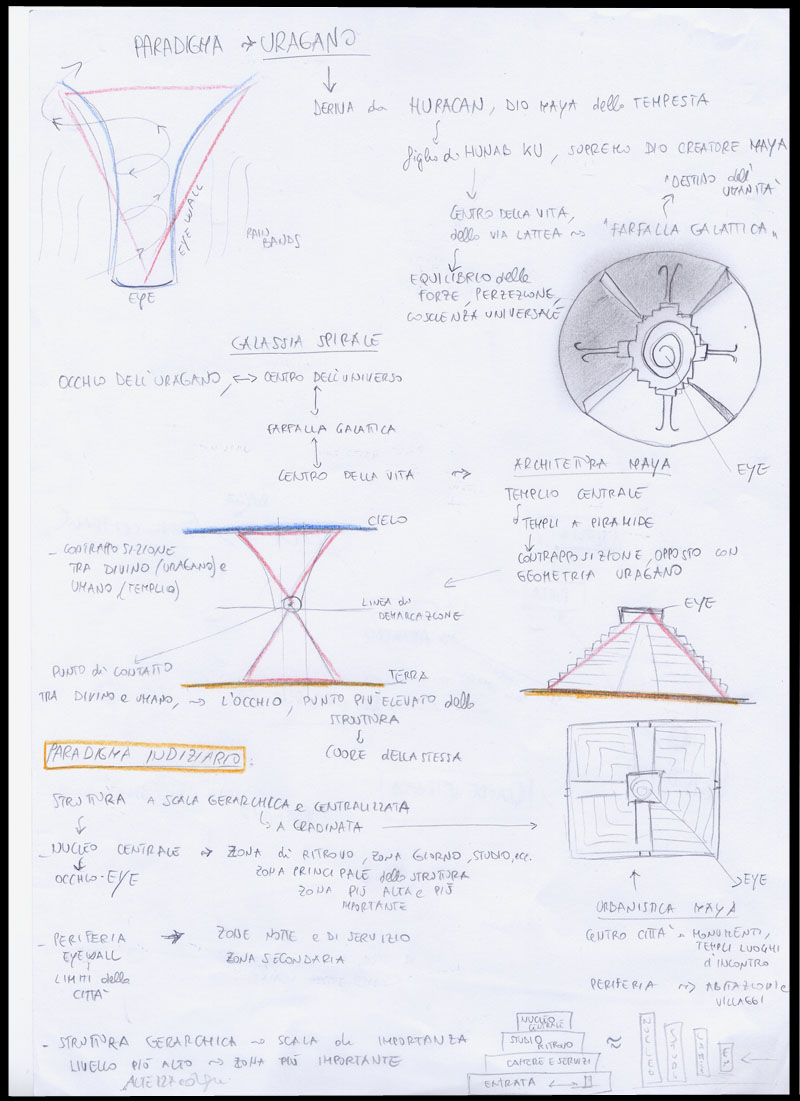 PARADIGMA → URAGANO
DERIVA da HURACAN, DIO MAYA della TEMPESTA
figlio di HUNAB KU, SUPREMO DIO CREATORE MAYA
"DESTINO dell'
UMANITÀ"
CENTRO DELLA VITA,
della VIA LATTEA → "FARFALLA GALATTICA"
EQUILIBRIO delle
FORZE, PERZEZIONE,
COSCIENZA UNIVERSALE
EYE WALL
RAIN
BANDS
EYE
GALASSIA SPIRALE
OCCHIO DELL'URAGANO ↔ CENTRO DELL'UNIVERSO
FARFALLA GALATTICA
CENTRO DELLA VITA →
EYE
ARCHITETTURA MAYA
TEMPLIO CENTRALE
TEMPLI A PIRAMIDE
CONTRAPPOSIZIONE, OPPOSTO CON
GEOMETRIA URAGANO
CIELO
- CONTRAPPOSIZIONE
TRA DIVINO (URAGANO) e
UMANO (TEMPLIO)
LINEA di
DEMARCAZIONE
EYE
PUNTO di CONTATTO
TERRA
TRA DIVINO e UMANO, → L'OCCHIO, PUNTO PIU' ELEVATO della
STRUTTURA
CUORE DELLA STESSA
PARADIGMA INDIZIARIO:
STRUTTURA A SCALA GERARCHICA e CENTRALIZZATA
A GRADINATA
- NUCLEO CENTRALE → ZONA di RITROVO, ZONA GIORNO, STUDIO, ecc.
OCCHIO-EYE
ZONA PRINCIPALE della STRUTTURA
ZONA PIÙ ALTA e PIÙ
IMPORTANTE
EYE
URBANISTICA MAYA
CENTRO CITTA' → MONUMENTI,
TEMPLI LUOGHI
d'INCONTRO
PERIFERIA → ABITAZIONI e
VILLAGGI
- PERIFERIA → ZONE NOTTE E DI SERVIZIO
EYEWALL
ZONA SECONDARIA
LIMITI della
CITTA'
- STRUTTURA GERARCHICA → SCALA di IMPORTANZA
LIVELLO PIÙ ALTO → ZONA PIÙ IMPORTANTE
NUCLEO
CENTRALE
STUDIO
RITROVO
CAMERE E SERVIZI
ENTRATA
≈
NUCLEO
STUDIO